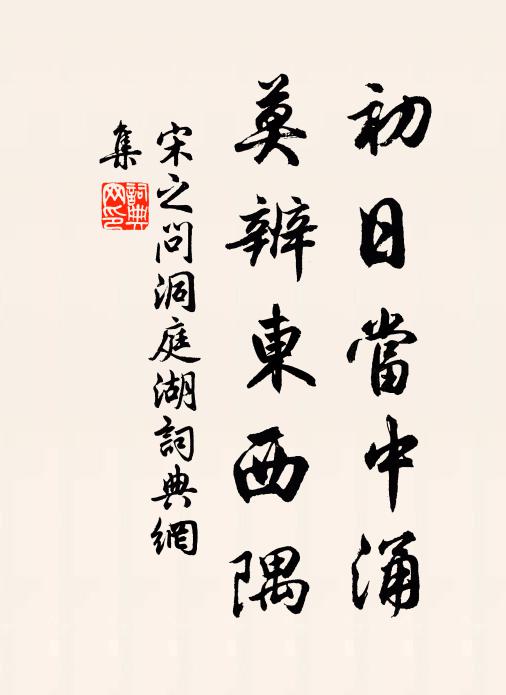 初日當中涌
莫辨東西隅
宋之問洞庭湖詞典網
集
詞典網印